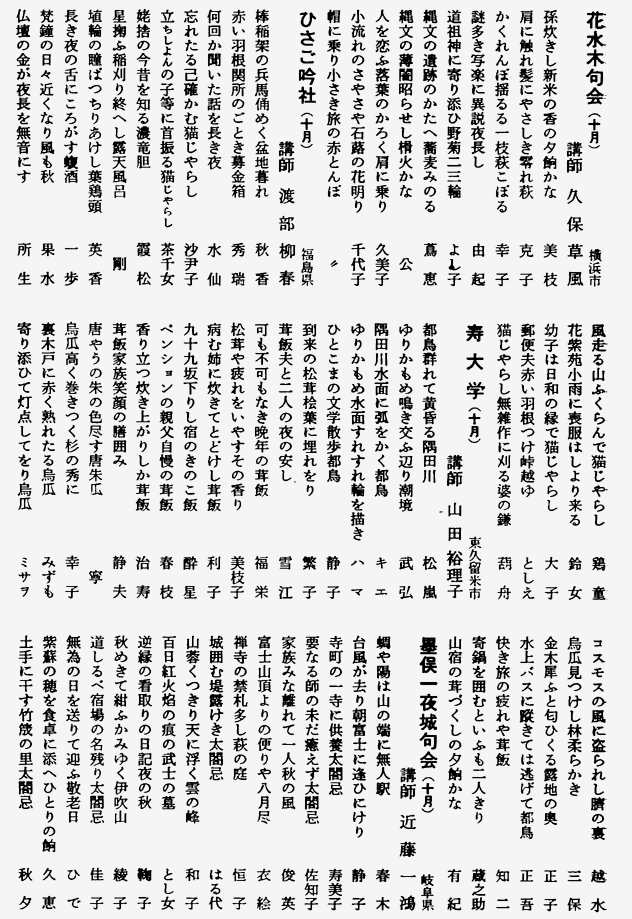 花水木句会（十月）
講師 久保 横浜市
孫炊きし新米の香の夕餉かな 草風
肩に触れ髪にやさしき零れ萩 美枝
かくれんぼ揺るる一枝萩こぼる 克子
謎多き写楽に異説夜長し 幸子
道祖神に寄り添ひ野菊二三輪 由起
縄文の遺跡のかたへ蕎麦みのる よし子
縄文の薄闇昭らせし榾火かな 蔦恵
人を恋ふ落葉のかろく肩に乗り 公
小流れのさやさや石蕗の花明り 久美子
帽に乗り小さき旅の赤とんぼ 千代子
〃
ひさご吟社（十月）
講師 渡部 福島県
棒稲架の兵馬俑めく盆地暮れ 柳春
赤い羽根関所のごとき募金箱 秋香
何回か聞いた話を長き夜 秀瑞
忘れたる己確かむ猫じやらし 水仙
立ちしよんの子等に首振る猫じやらし 沙尹子
姥捨の今昔を知る濃竜胆 茶千女
星掬ふ稲刈り終へし露天風呂 霞松
埴輪の瞳ぱつちりあけし葉鶏頭 剛
長き夜の舌にころがす蝮酒 英香
梵鐘の日々近くなり風も秋 一歩
仏壇の金が夜長を無音にす 果水
所生
風走る山ふくらんで猫じやらし 鶏童
花紫苑小雨に喪服はしより来る 鈴女
幼子は日和の縁で猫じやらし 大子
郵便夫赤い羽根つけ峠越ゆ としえ
猫じやらし無雑作に刈る婆の鎌 蒻舟
寿大学（十月）
講師 山田裕理子 東久留米市
都鳥群れて黄昏る隅田川 松嵐
ゆりかもめ鳴き交ふ辺り潮境 武弘
隅田川水面に弧をかく都鳥 キエ
ゆりかもめ水面すれすれ輪を描き ハマ
ひとこまの文学散歩都鳥 静子
到来の松茸桧葉に埋れをり 繁子
茸飯夫と二人の夜の安し 雪江
可も不可もなき晩年の茸飯 福栄
松茸や疲れをいやすその香り 美枝子
病む姉に炊きてとどけし茸飯 利子
九十九坂下りし宿のきのこ飯 酔星
ペンションの親父自慢の茸飯 春枝
香り立つ炊き上がりしか茸飯 治寿
茸飯家族笑顔の膳囲み 静夫
唐やうの朱の色尽す唐朱瓜 寧
烏瓜高く巻きつく杉の秀に 幸子
裏木戸に赤く熟れたる烏瓜 みずも
寄り添ひて灯点してをり烏瓜 ミサヲ
コスモスの風に盗られし臍の裏 越水
烏瓜見つけし林柔らかき 三保
金木犀ふと匂ひくる露地の奥 正子
水上バスに蹤きては逃げて都鳥 正吾
快き旅の疲れや茸飯 知二
寄鍋を囲むといふも二人きり 蔵之助
山宿の茸づくしの夕餉かな 有紀
墨俣一夜城句会（十月）
講師 近藤一鴻 岐阜県
蜩や陽は山の端に無人駅 春木
台風が去り朝富士に逢ひにけり 静子
寺町の一寺に供養太閤忌 寿美子
要なる師の未だ癒えず太閤忌 佐知子
家族みな離れて一人秋の風 俊英
富士山頂よりの便りや八月尽 衣絵
禅寺の禁札多し萩の庭 恒子
城囲む堤露けき太閤忌 はる代
山蓉くつきり天に浮く雲の峰 和子
百日紅火焔の痕の武士の墓 とし女
逆縁の看取りの日記夜の秋 鞠子
秋めきて紺ふかみゆく伊吹山 綾子
道しるべ宿場の名残り太閤忌 佳子
無為の日を送りて迎ふ敬老日 ひで
紫蘇の穂を食卓に添へひとりの餉 久恵
土手に干す竹筬の里太閤忌 秋夕